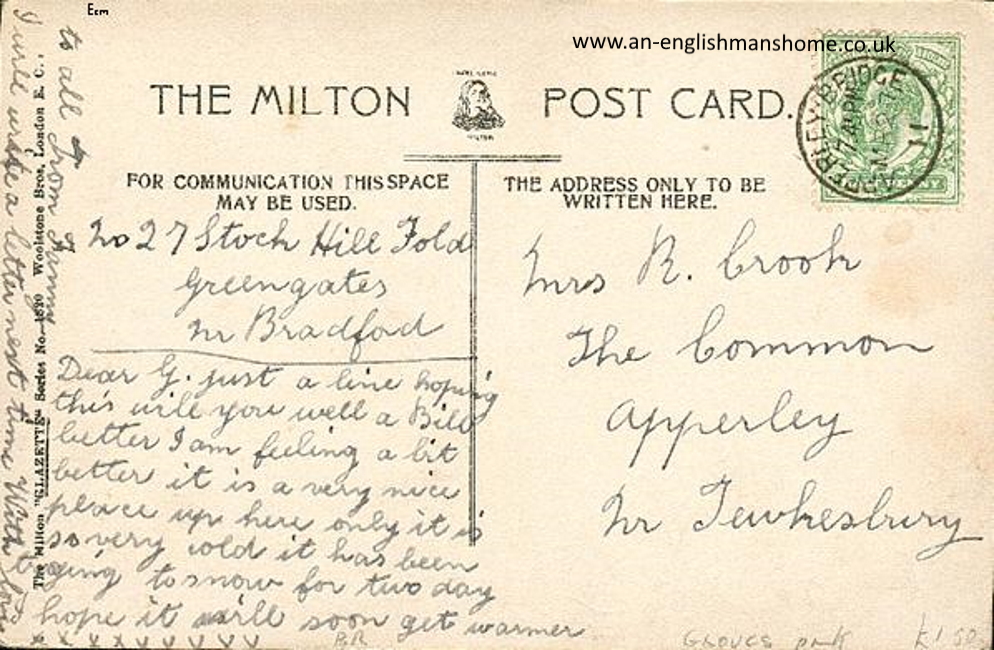 Ecm
www.an-englishmanshome.co.uk
THE MILTON POST CARD.
MILTON
APPERLEY-BRIDGE
7 15 PM
MR 27
11
FOR COMMUNICATION THIS SPACE
MAY BE USED.
THE ADDRESS ONLY TO BE
WRITTEN HERE.
No 27 Stock Hill Fold
Greengates
nr Bradfod
Dear G. just a line hoping
this will you well a Bill
better I am feeling a bit
better it is a very nice
place up here only it is
so very cold it has been
going to snow for two day
hope it will soon get warmer
x x x x x x x x x x
I will write a letter next time With love
to all from Fanny
Mrs R. Crook
The Common
Apperley
Nr Tewkesbury
The Milton "GLAZETTE" Series No. Woolstone Bros., London E.C.,
BR
GLOUCS
£1.50